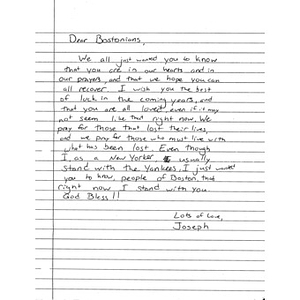 Dear Bostonians,
We all just wanted you to know
that you are in our hearts and in
our prayers, and that we hope you can
all recover. I wish you the best
of luck in the coming years, and
that you are all loved, even if it may
not seem like that right now. We
pay for those that lost their lives,
and we pay for those who must live with
what has been lost. Even though
I, as a New Yorker, usually
stand with the Yankees, I just want
you to know, people of Boston, that
right now I stand with you.
God Bless!!
Lots of Love,
Joseph